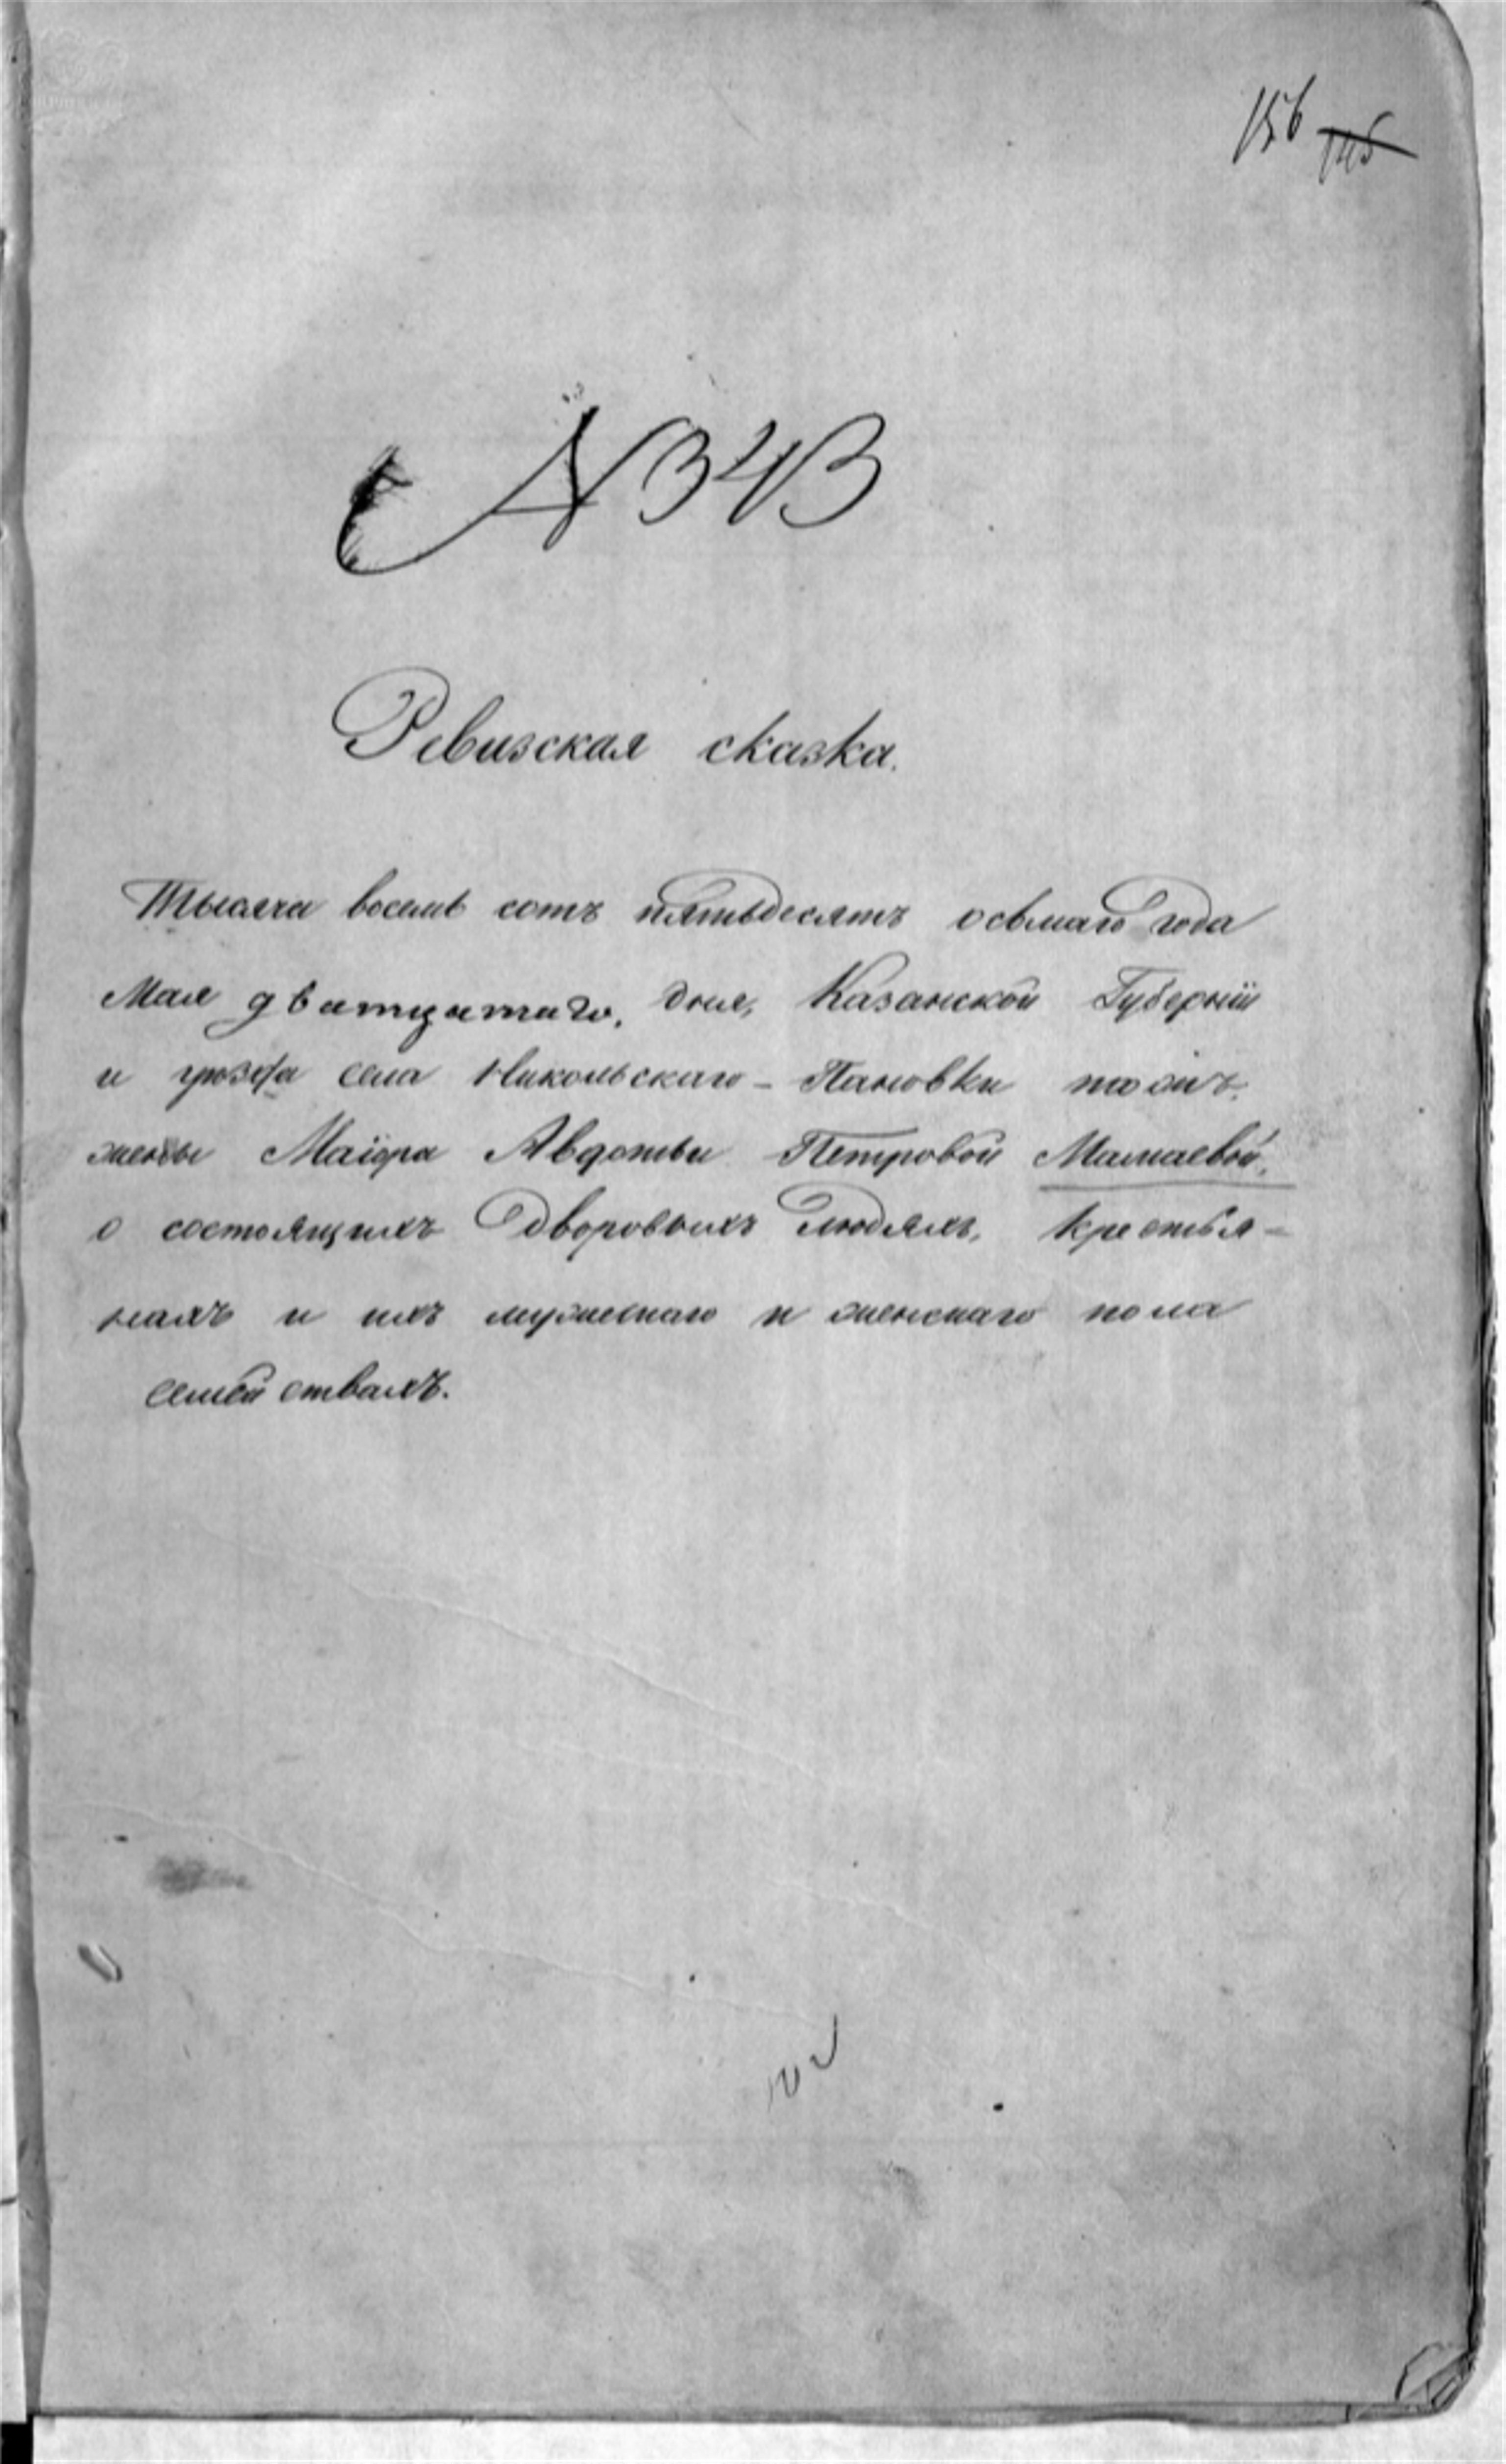 156 145
N 343
Ревизская сказка.
Тысяча восемь сотъ пятьдесятъ осьмаго года
Мая дватцатаго, дня, Казанской Губерніи
и уѣзда села Никольскаго - Пановки тожъ.
жены Маіора Авдотьи Петровой Мамаевой,
о состоящихъ Дворовыхъ людяхъ, крестья-
нахъ и ихъ мужескаго и женскаго пола
семействахъ.